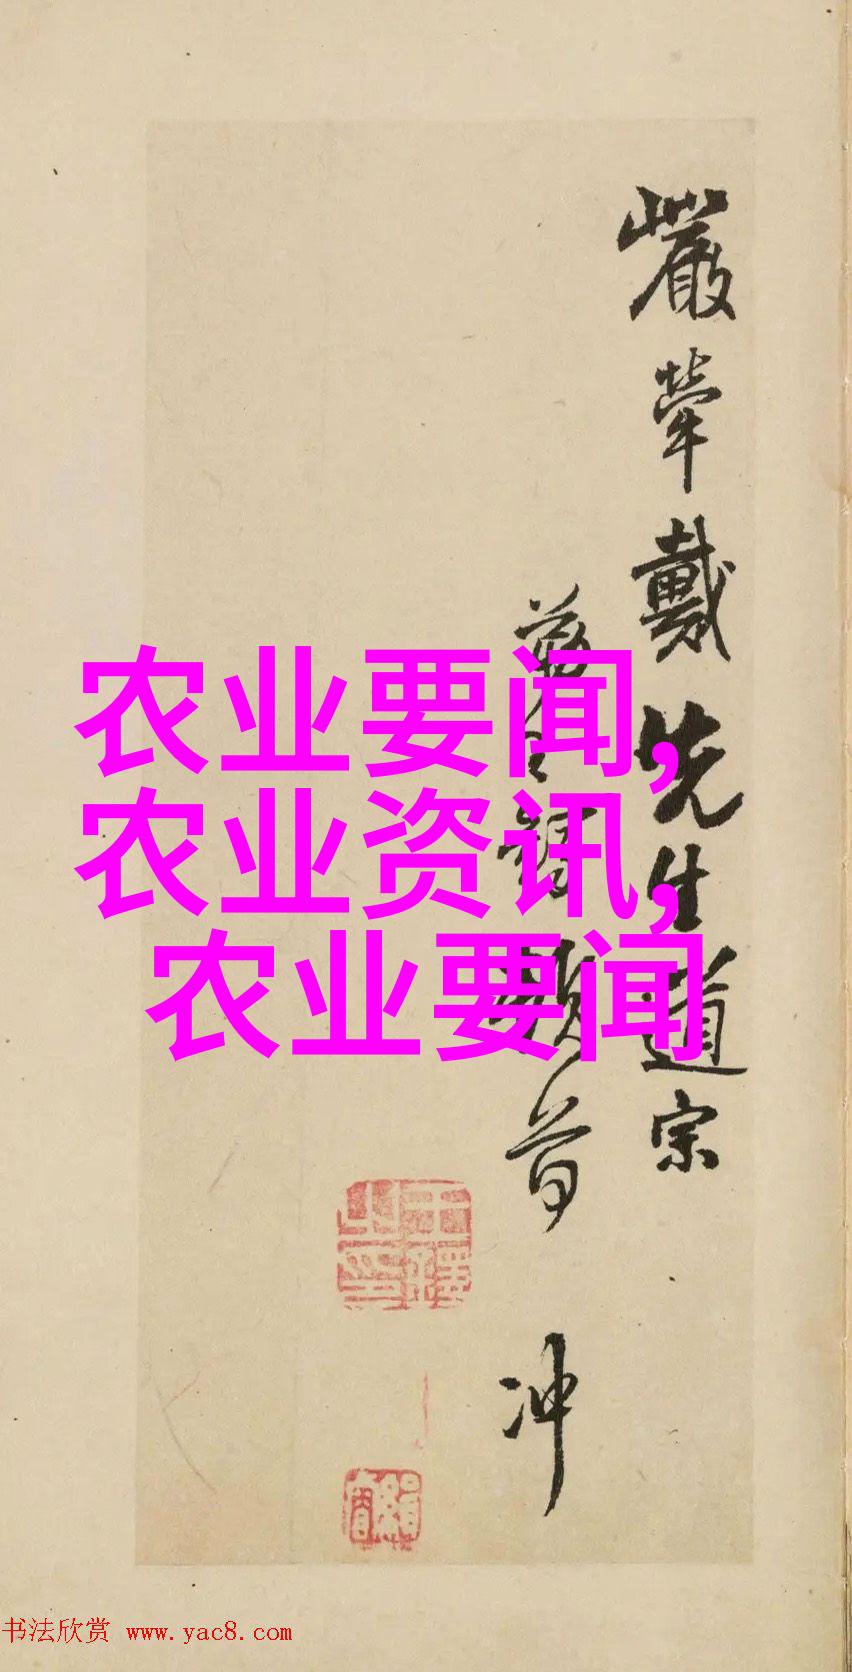 嚴犖戴先生道宗
頓首
冲
农业要闻,
农业资讯,
农业要闻
书法欣赏 www.yac8.com